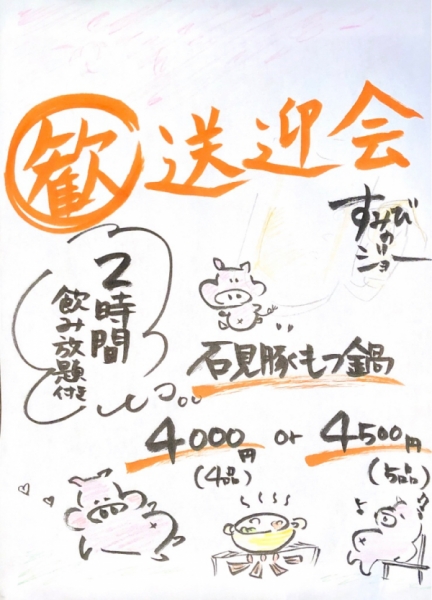 歓送迎会
すみびの
ジョー
2時間
飲み放題付き
石見豚もつ鍋
4000円 or 4500円
(4品) (5品)